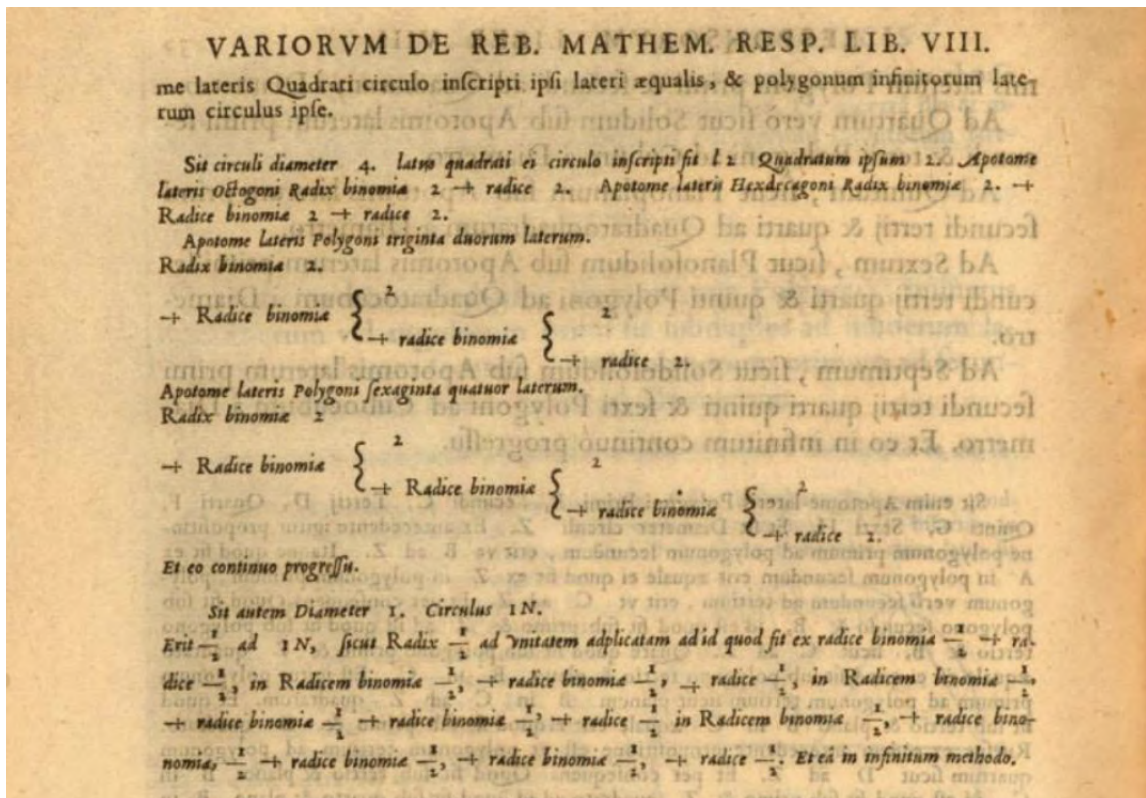 VARIORVM DE REB. MATHEM. RESP. LIB. VIII.
me lateris Quadrati circulo inſcripti ipſi lateri æqualis, & polygonum infinitorum late-
rum circulus ipſe.
Sit circuli diameter 4. latus quadrati ei circulo inſcripti fit l 2 Quadratum ipſum 2. Apotome
lateris Octogoni Radix binomiæ 2 + radice 2. Apotome lateris Hexdecagoni Radix binomiæ 2. +
Radice binomiæ 2 + radice 2.
Apotome lateris Polygoni triginta duorum laterum.
Radix binomiæ 2.
+ Radice binomiæ { 2
+ radice binomiæ { 2
+ radice 2.
Apotome lateris Polygoni ſexaginta quatuor laterum.
Radix binomiæ 2
+ Radice binomiæ { 2
+ Radice binomiæ { 2
+ radice binomiæ { 2
+ radice 2.
Et eo continuo progreſſu.
Sit autem Diameter 1. Circulus 1 N.
Erit 1/2 ad 1 N, ſicut Radix 1/2 ad Vnitatem adplicatam ad id quod fit ex radice binomiæ 1/2 + ra-
dice 1/2, in Radicem binomiæ 1/2, + radice binomiæ 1/2, + radice 1/2, in Radicem binomiæ 1/2,
+ radice binomiæ 1/2 + radice binomiæ 1/2, + radice 1/2 in Radicem binomiæ 1/2, + radice bino-
nomiæ, 1/2 + radice binomiæ 1/2, + radice binomiæ 1/2, + radice 1/2. Et eâ in infinitum methodo.